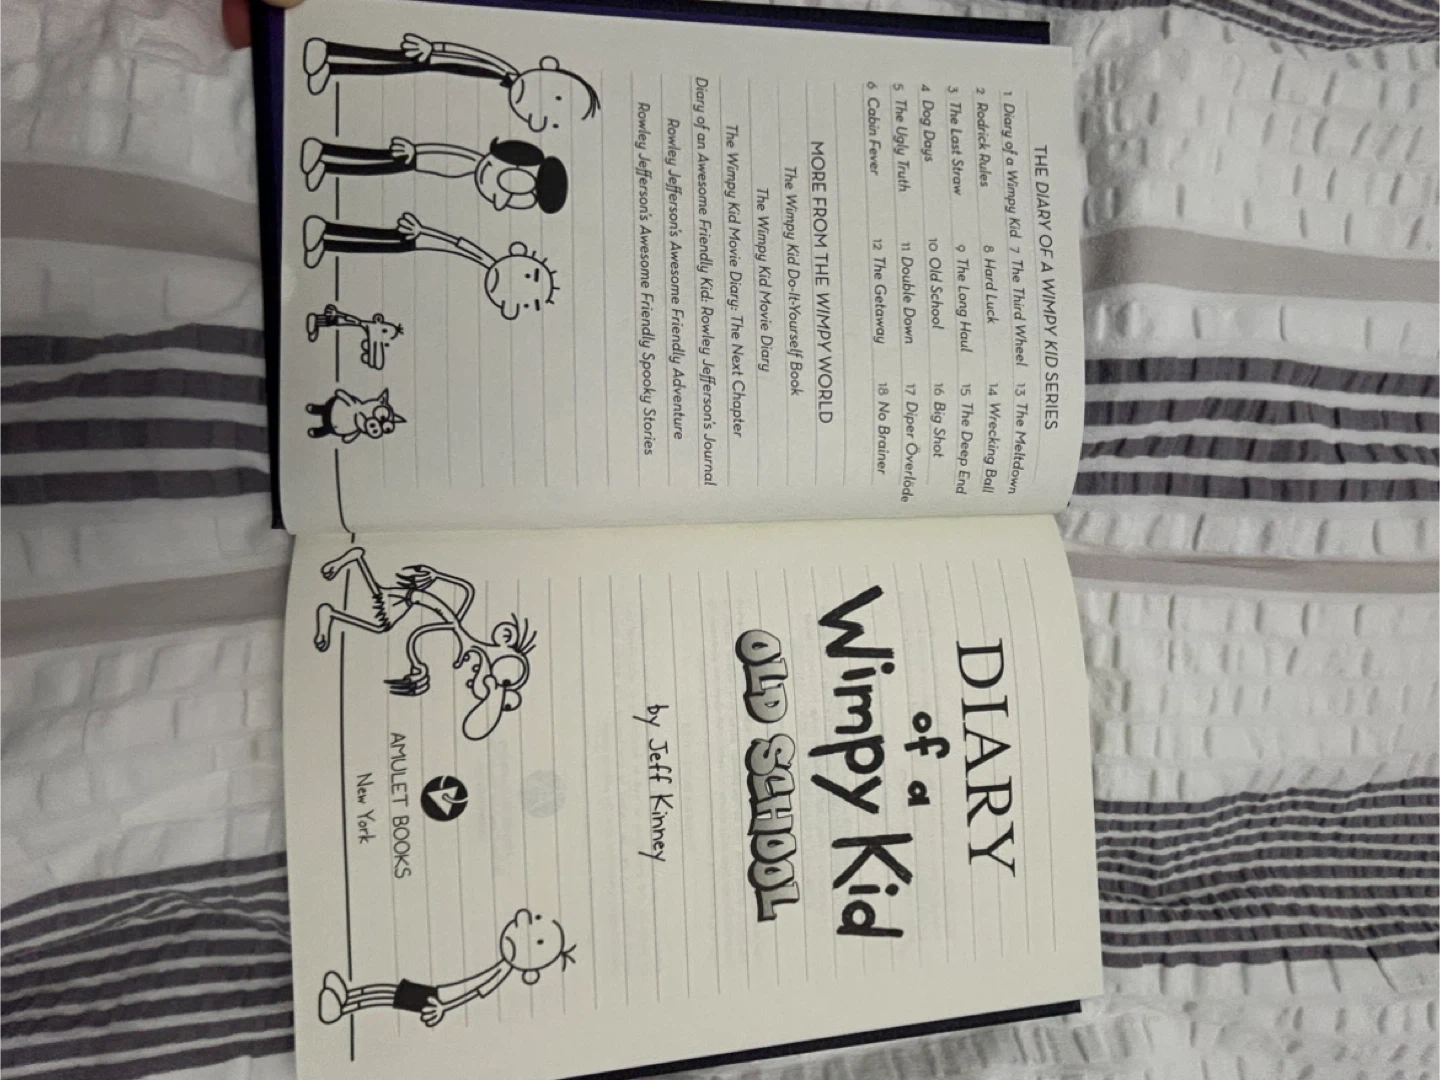 THE DIARY OF A WIMPY KID SERIES
1 Diary of a Wimpy Kid 7 The Third Wheel 13 The Meltdown
2 Rodrick Rules 8 Hard Luck 14 Wrecking Ball
3 The Last Straw 9 The Long Haul 15 The Deep End
4 Dog Days 10 Old School 16 Big Shot
5 The Ugly Truth 11 Double Down 17 Diper Överlöde
6 Cabin Fever 12 The Getaway 18 No Brainer
MORE FROM THE WIMPY WORLD
The Wimpy Kid Do-It-Yourself Book
The Wimpy Kid Movie Diary
The Wimpy Kid Movie Diary: The Next Chapter
Diary of an Awesome Friendly Kid: Rowley Jefferson's Journal
Rowley Jefferson's Awesome Friendly Adventure
Rowley Jefferson's Awesome Friendly Spooky Stories
DIARY
of a
Wimpy Kid
OLD SCHOOL
by Jeff Kinney
AMULET BOOKS
New York